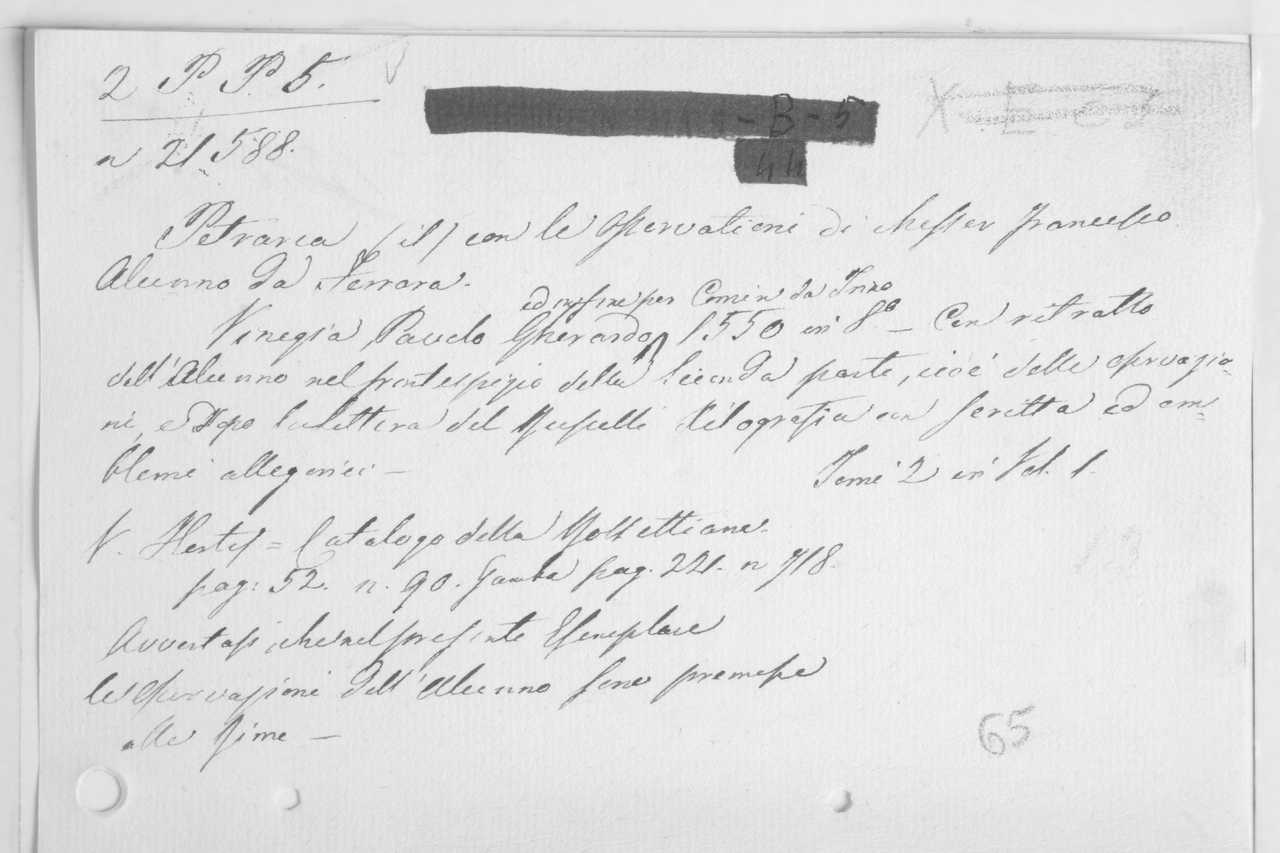 2 P. P. 5.
- B - 5
44
n 21.588.
Petrarca (il) con le Osservationi di Messer Francesco
Alunno da Ferrara.
ed infine per Comin da Trino
Vinegia Paulo Gherardo 1550 in 8º – Con ritratto
dell'Alunno nel frontespizio della seconda parte, cioè delle osservazio-
ni, e dopo la lettera del Silografia con scritta ed em-
blemi allegorici –
Tomi 2 in Vol. 1.
V. = Catalogo della
pag: 52. n. 90. Gamba pag. 221. n 718.
Avvertasi, che nel presente Esemplare
le osservazioni dell'Alunno sono premesse
alle Rime –
65